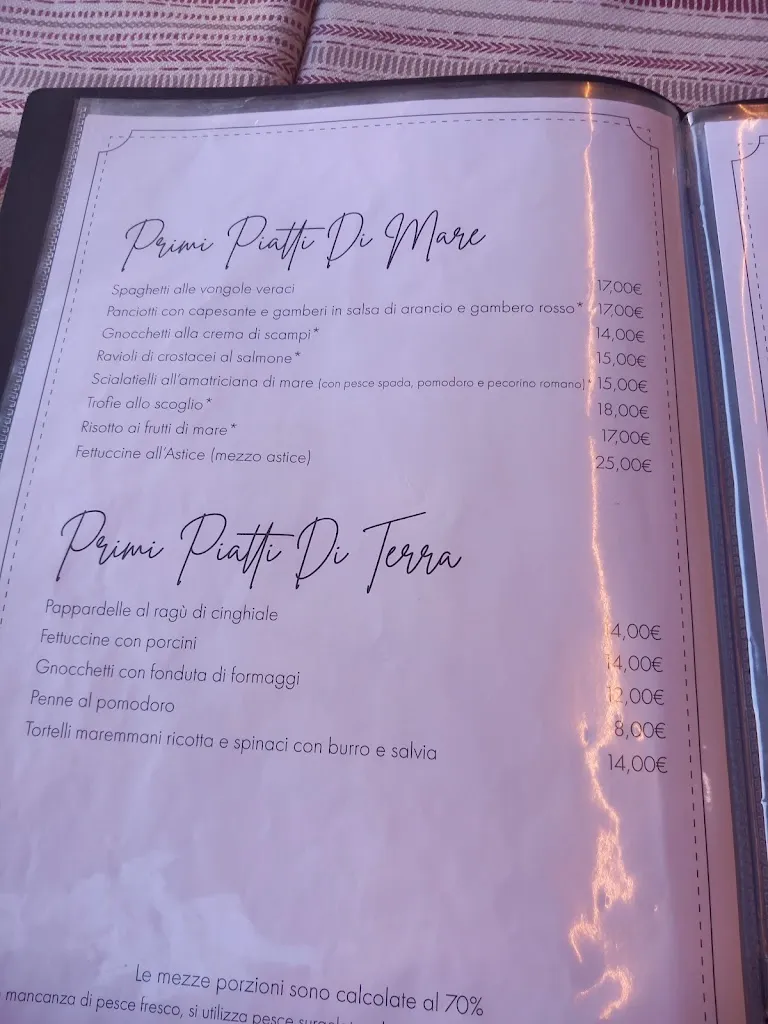 Primi Piatti Di Mare
Spaghetti alle vongole veraci 17,00€
Panciotti con capesante e gamberi in salsa di arancio e gambero rosso* 17,00€
Gnocchetti alla crema di scampi* 14,00€
Ravioli di crostacei al salmone* 15,00€
Scialatielli all'amatriciana di mare (con pesce spada, pomodoro e pecorino romano)* 15,00€
Trofie allo scoglio* 18,00€
Risotto ai frutti di mare* 17,00€
Fettuccine all'Astice (mezzo astice) 25,00€
Primi Piatti Di Terra
Pappardelle al ragù di cinghiale 14,00€
Fettuccine con porcini 14,00€
Gnocchetti con fonduta di formaggi 12,00€
Penne al pomodoro 8,00€
Tortelli maremmani ricotta e spinaci con burro e salvia 14,00€
Le mezze porzioni sono calcolate al 70%
mancanza di pesce fresco, si utilizza pesce